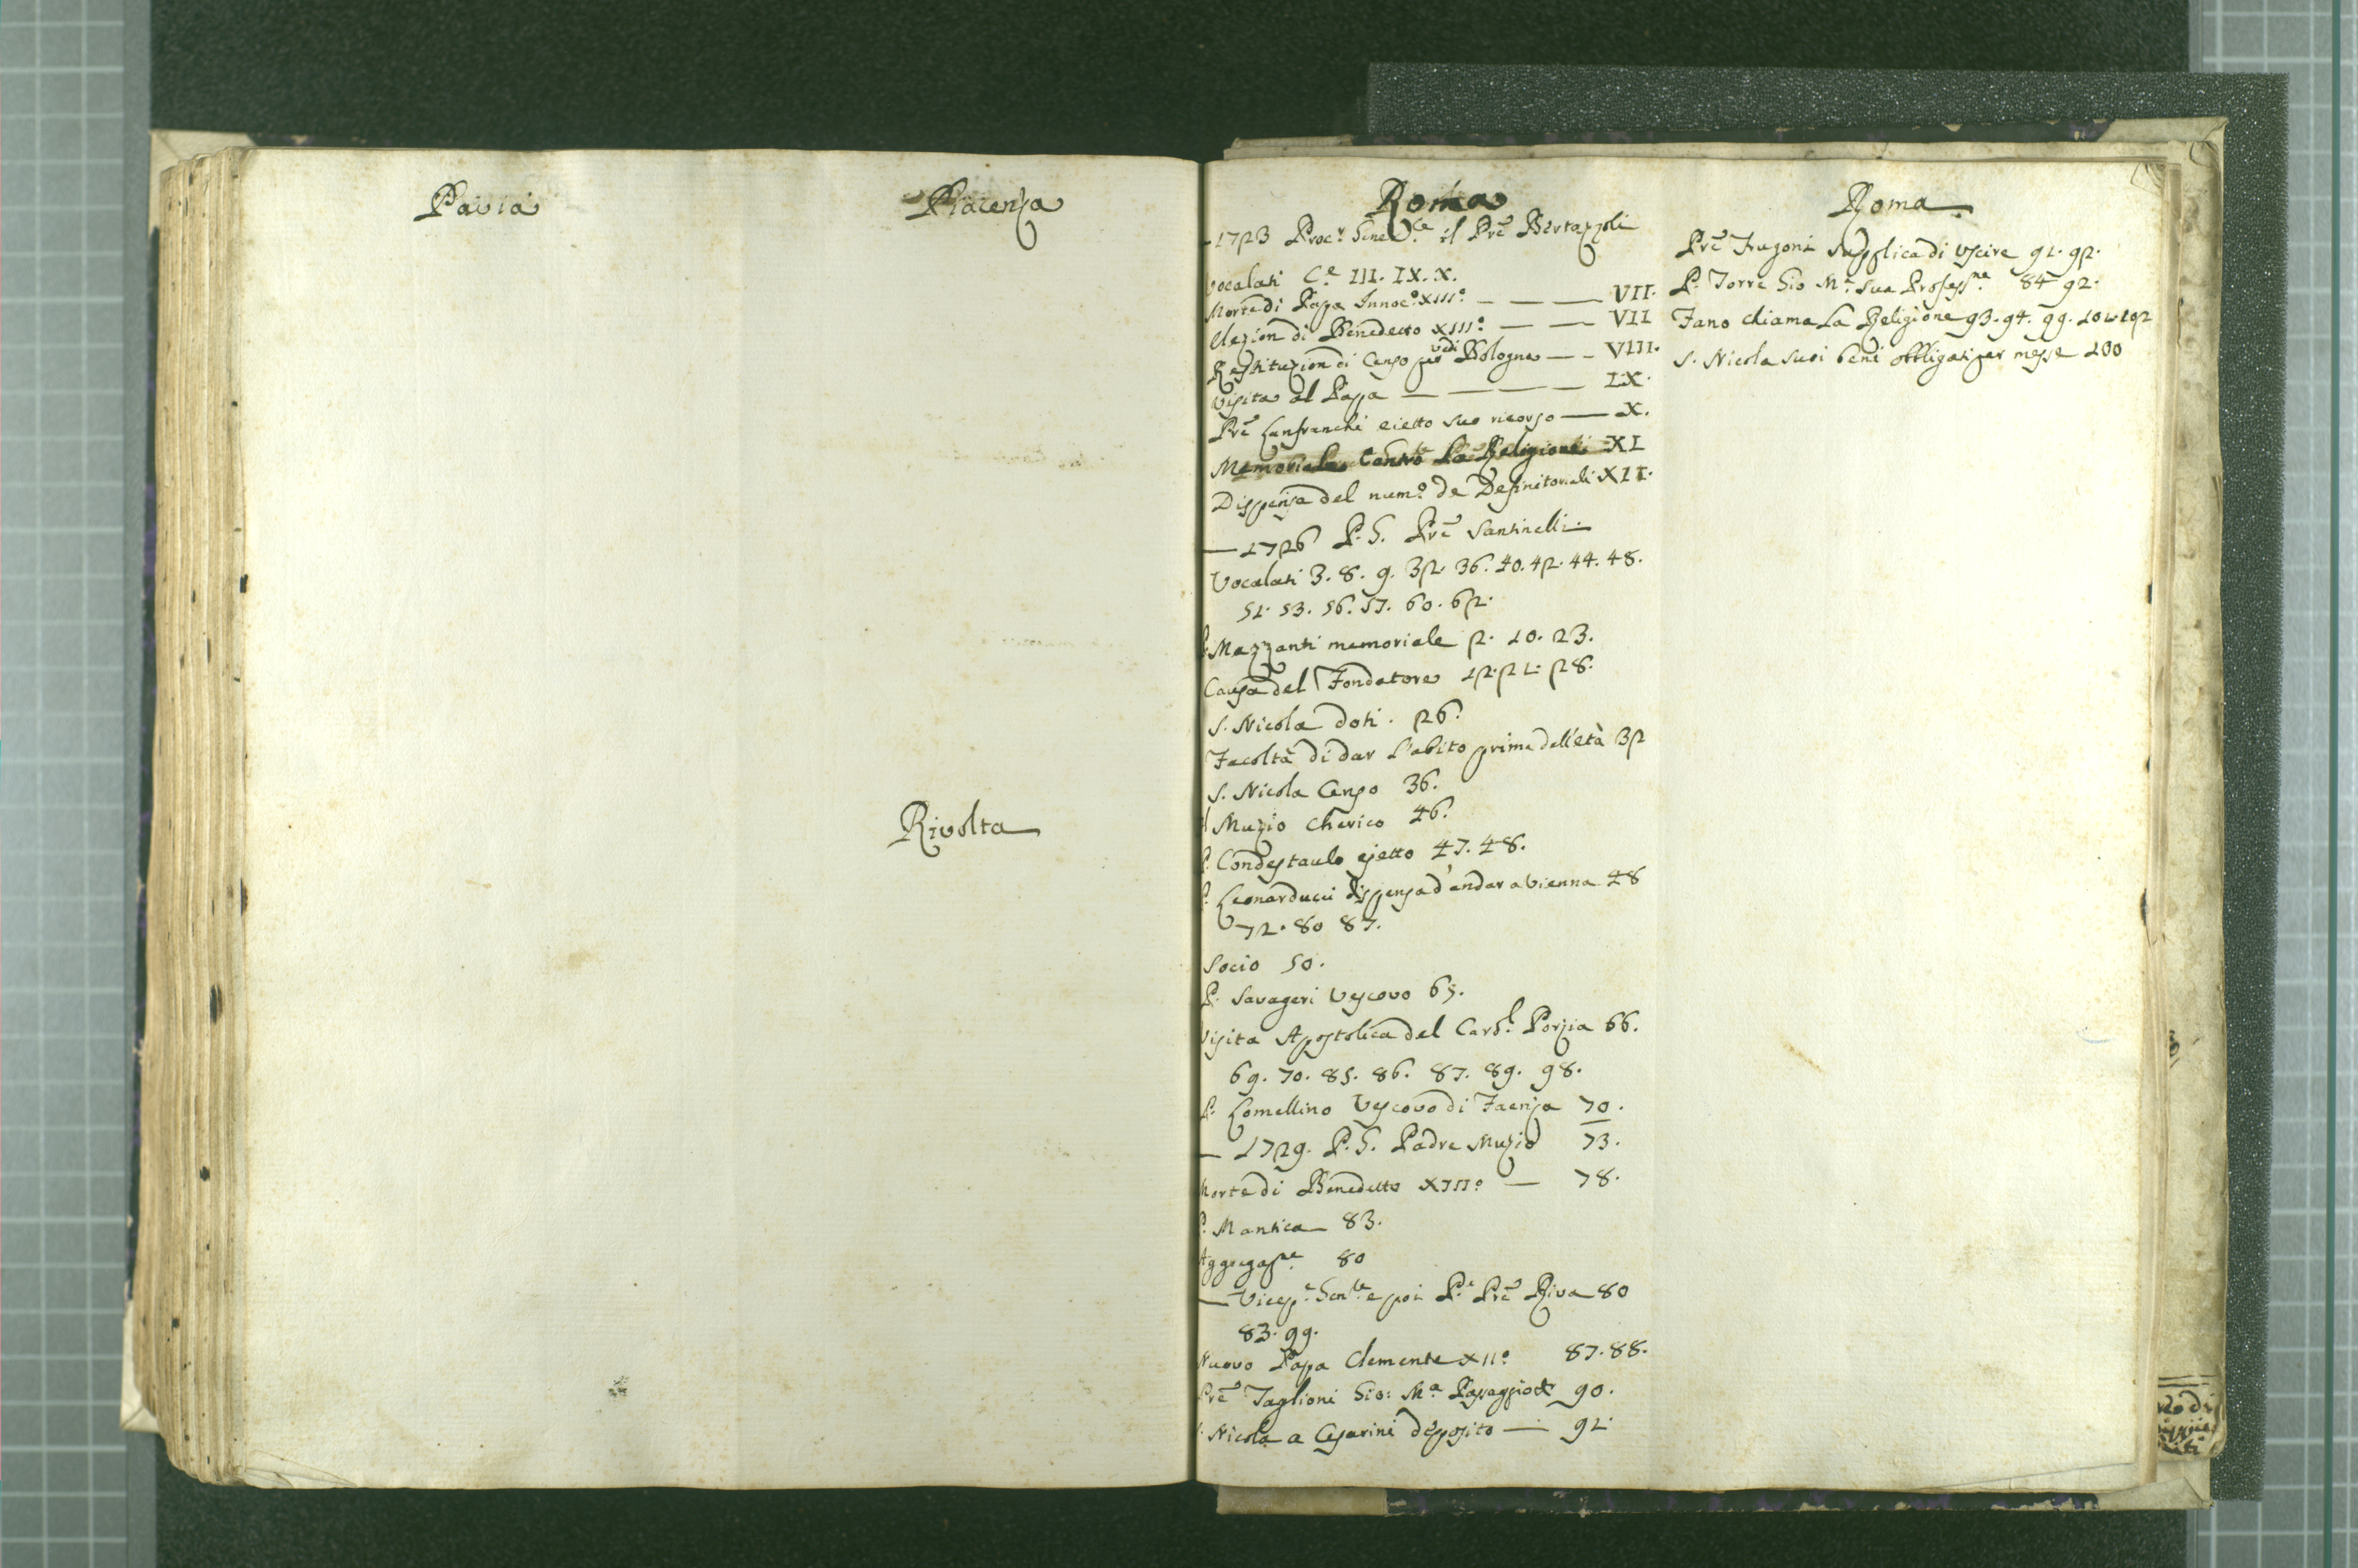 Pavia
Piacenza
Rivolta
Roma
– 1723 Proc.r Gene.le il Prē Bertazzoli
Vocalati C.e III. IX. X.
Morte di Papa Innoc.o XIII.o — — — VII.
Elezion di Benedetto XIII.o — — VII
Restituzion di Censo vedi Bologna — – VIII.
Visita al Papa — — — — IX.
Prē Lanfranchi eietto suo ricorso — X.
Memoriale Contro La Religione XI
Dispensa del num.o de Definitoriali XII.
— 1726 P. G. Prē Santinelli.
Vocalati 3. 8. 9. 32. 36. 40. 42. 44. 48.
51. 53. 56. 57. 60. 62.
P. Mazzanti memoriale 2. 10. 23.
Causa del Fondatore 12. 21. 28.
S. Nicola doti. 26.
Facoltà di dar l'abito prima dell'età 32
S. Nicola Censo 36.
Muzio Cherico 46.
P. Condestaulo ejetto 47. 48.
P. Leonarducci dispensa d'andar a Vienna 48
72. 80 87.
Socio 50.
P. Savageri Vescovo 65.
Visita Apostolica del Card.l Porzia 66.
69. 70. 85. 86. 87. 89. 98.
P. Lomellino Vescovo di Faenza 70.
— 1729. P. G. Padre Muzio 73.
Morte di Benedetto XIII.o — 78.
P. Mantica 83.
Aggregaz.ne 80
— Vicep.e Gen.le e poi P.e Prē Riva 80
83. 99.
Nuovo Papa Clemente XII.o 87. 88.
Prē Taglioni Gio: M.a 90.
S. Nicola a Cesarini deposito — 91.
Roma
Prē Frugoni supplica di uscire 91. 92.
P. Torre Gio M.a sua Profess.ne 84 92.
Fano chiama La Religione 93. 94. 99. 101. 102
S. Nicola suoi beni obbligati per messe 100